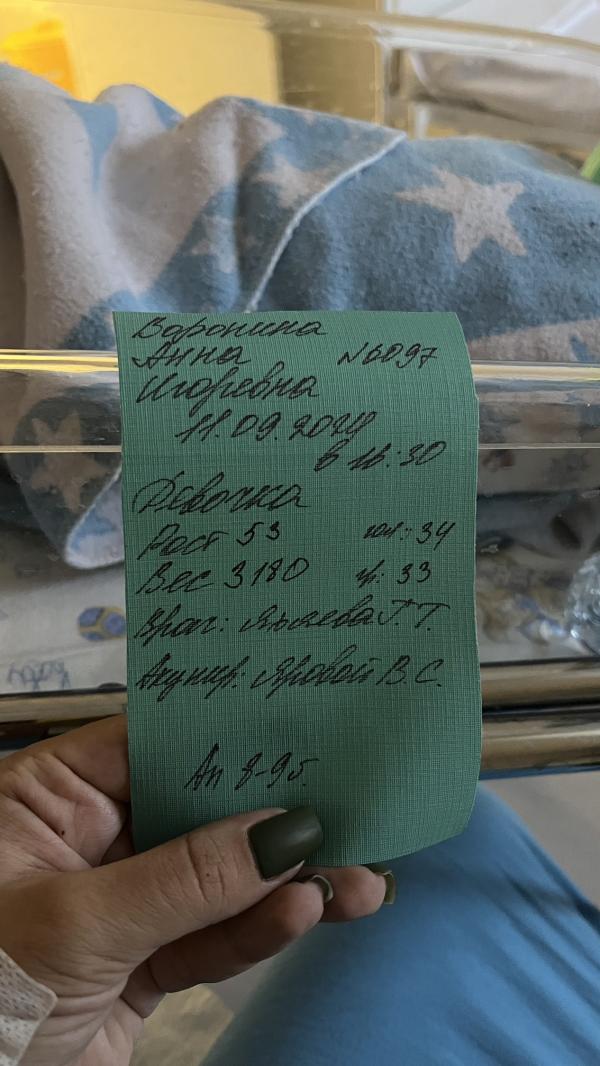 Воронина
Анна №6097
Игоревна
11.09.2024
в 16:30
Девочка
Рост 53 гол.: 34
Вес 3180 гр.: 33
Врач: Г. Т.
Акушер: Яровой В. С.
Ап 8-9б.